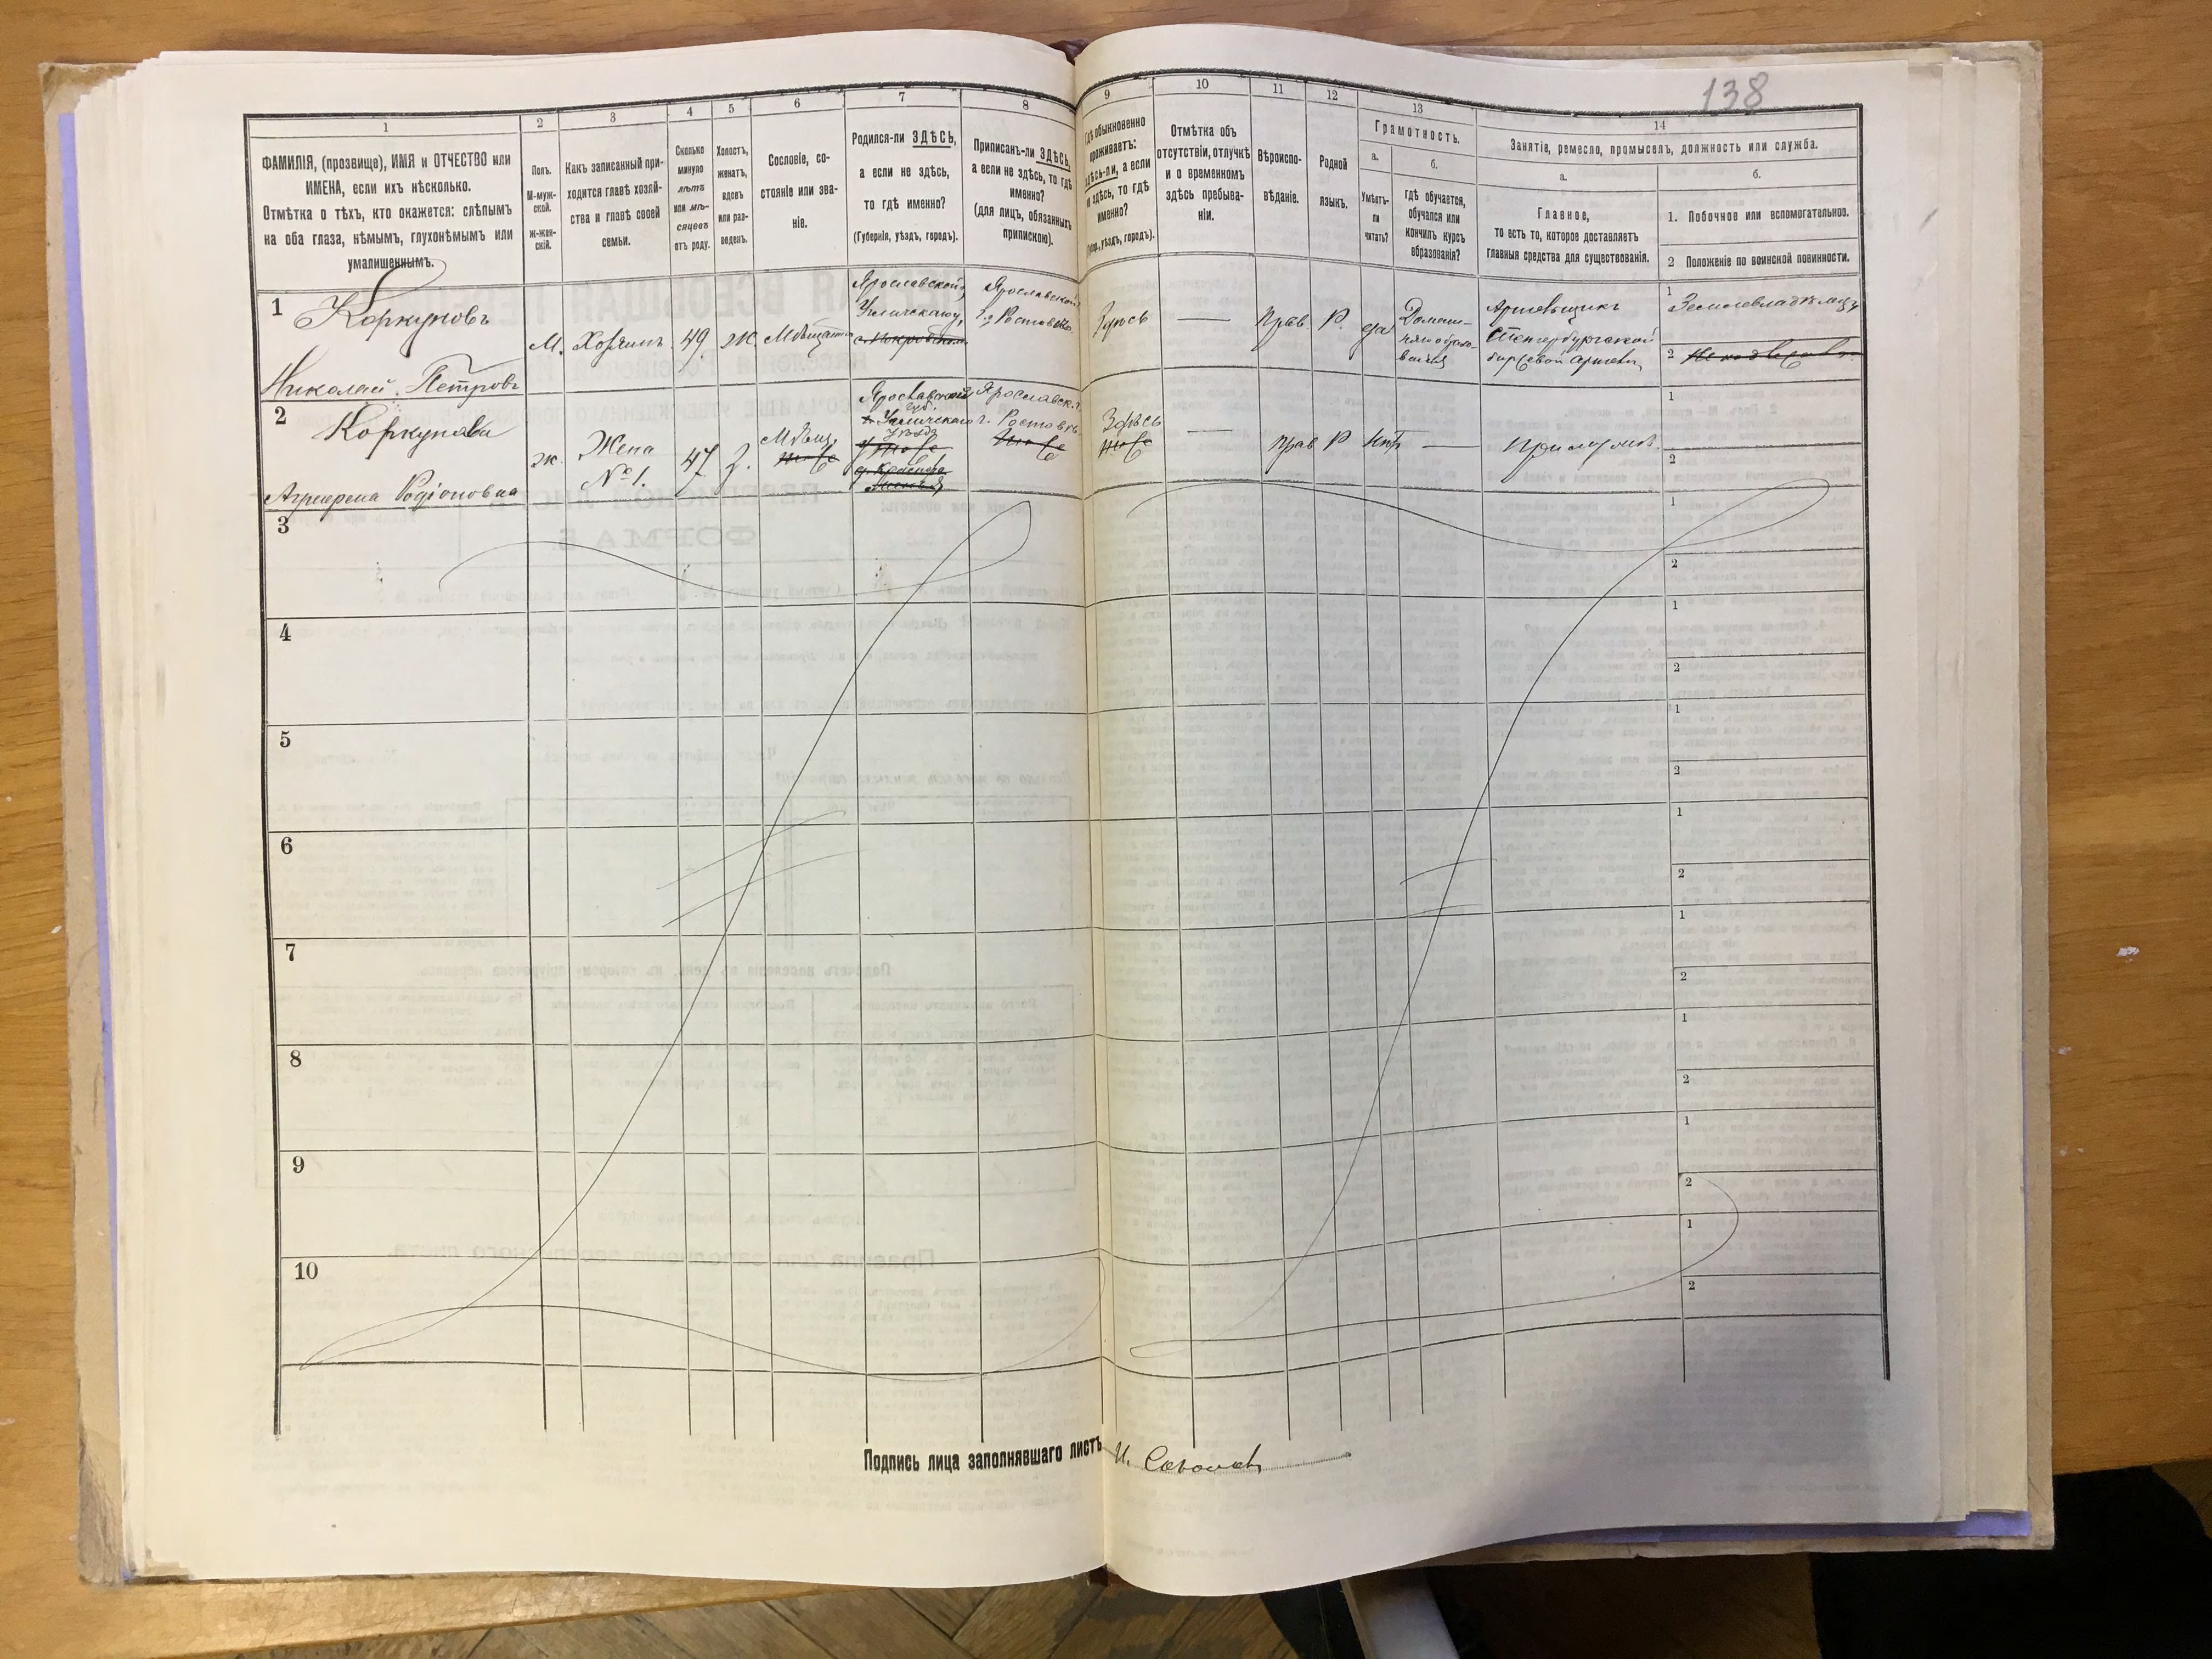 138
1
2
3
4
5
6
7
8
9
10
11
12
13
14
ФАМИЛІЯ, (прозвище), ИМЯ и ОТЧЕСТВО или
ИМЕНА, если ихъ нѣсколько.
Отмѣтка о тѣхъ, кто окажется: слѣпымъ
на оба глаза, нѣмымъ, глухонѣмымъ или
умалишеннымъ.
Полъ.
М-муж-
ской.
Ж-жен-
скій.
Какъ записанный при-
ходится главѣ хозяй-
ства и главѣ своей
семьи.
Сколько
минуло
лѣтъ
или мѣ-
сяцевъ
отъ роду.
Холостъ,
женатъ,
вдовъ
или раз-
веденъ.
Сословіе, со-
стояніе или зва-
ніе.
Родился-ли ЗДѢСЬ,
а если не здѣсь,
то гдѣ именно?
(Губернія, уѣздъ, городъ).
Приписанъ-ли ЗДѢСЬ,
а если не здѣсь, то гдѣ
именно?
(для лицъ, обязанныхъ
припискою).
Гдѣ обыкновенно
проживаетъ:
здѣсь-ли, а если
не здѣсь, то гдѣ
именно?
(Губер., уѣздъ, городъ).
Отмѣтка объ
отсутствіи, отлучкѣ
и о временномъ
здѣсь пребыва-
ніи.
Вѣроиспо-
вѣданіе.
Родной
языкъ.
Грамотность.
а.
Умѣетъ-
ли
читать?
б.
Гдѣ обучается,
обучался или
кончилъ курсъ
образованія?
Занятіе, ремесло, промыселъ, должность или служба.
а.
Главное,
то есть то, которое доставляетъ
главныя средства для существованія.
б.
1. Побочное или вспомогательное.
2 Положеніе по воинской повинности.
1
Коркуновъ
Николай Петровъ
М.
Хозяинъ
49
Ж
Мѣщан
Ярославской,
Угличскаго,
Ярославской
г. Ростовъ
Здѣсь
—
Прав.
Р.
да
Домаш-
няго образо-
ванія
Артельщикъ
С Петербургской
биржевой артели
1
Землевладѣлецъ
2
2
Коркунова
Агрипена Родіоновна
ж.
Жена
№ 1.
47
З.
Мѣщ.
тоже
Ярославской
губ.
Угличскаго
уѣзда
Ярославск.
г. Ростовъ
тоже
Здѣсь
тоже
—
Прав
Р
нѣтъ
—
При мужѣ.
1
2
3
1
2
4
1
2
5
1
2
6
1
2
7
1
2
8
1
2
9
1
2
10
1
2
Подпись лица заполнявшаго листъ И. Соколовъ